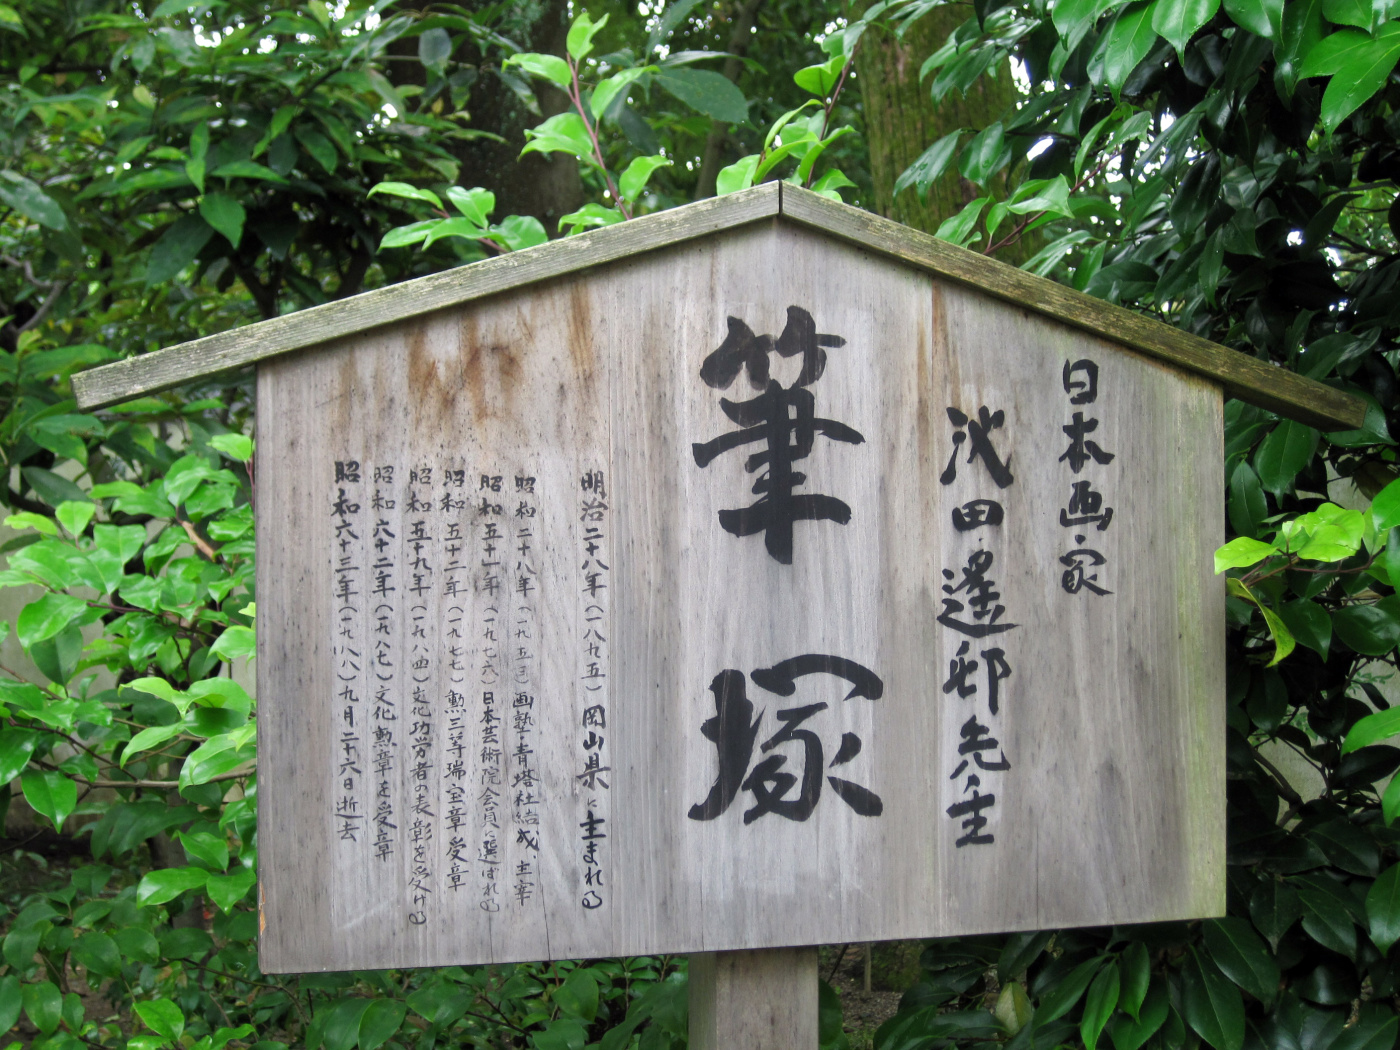 日本画家
浅田遙邨先生
筆塚
明治二十八年(一八九五)岡山県に生まれる
昭和二十八年(一九五三)画塾・青塔社結成、主宰
昭和五十一年(一九七六)日本芸術院会員に選ばれる
昭和五十二年(一九七七)勲三等瑞宝章受章
昭和五十九年(一九八四)文化功労者の表彰を受ける
昭和六十二年(一九八七)文化勲章を受章
昭和六十三年(一九八八)九月二十六日逝去